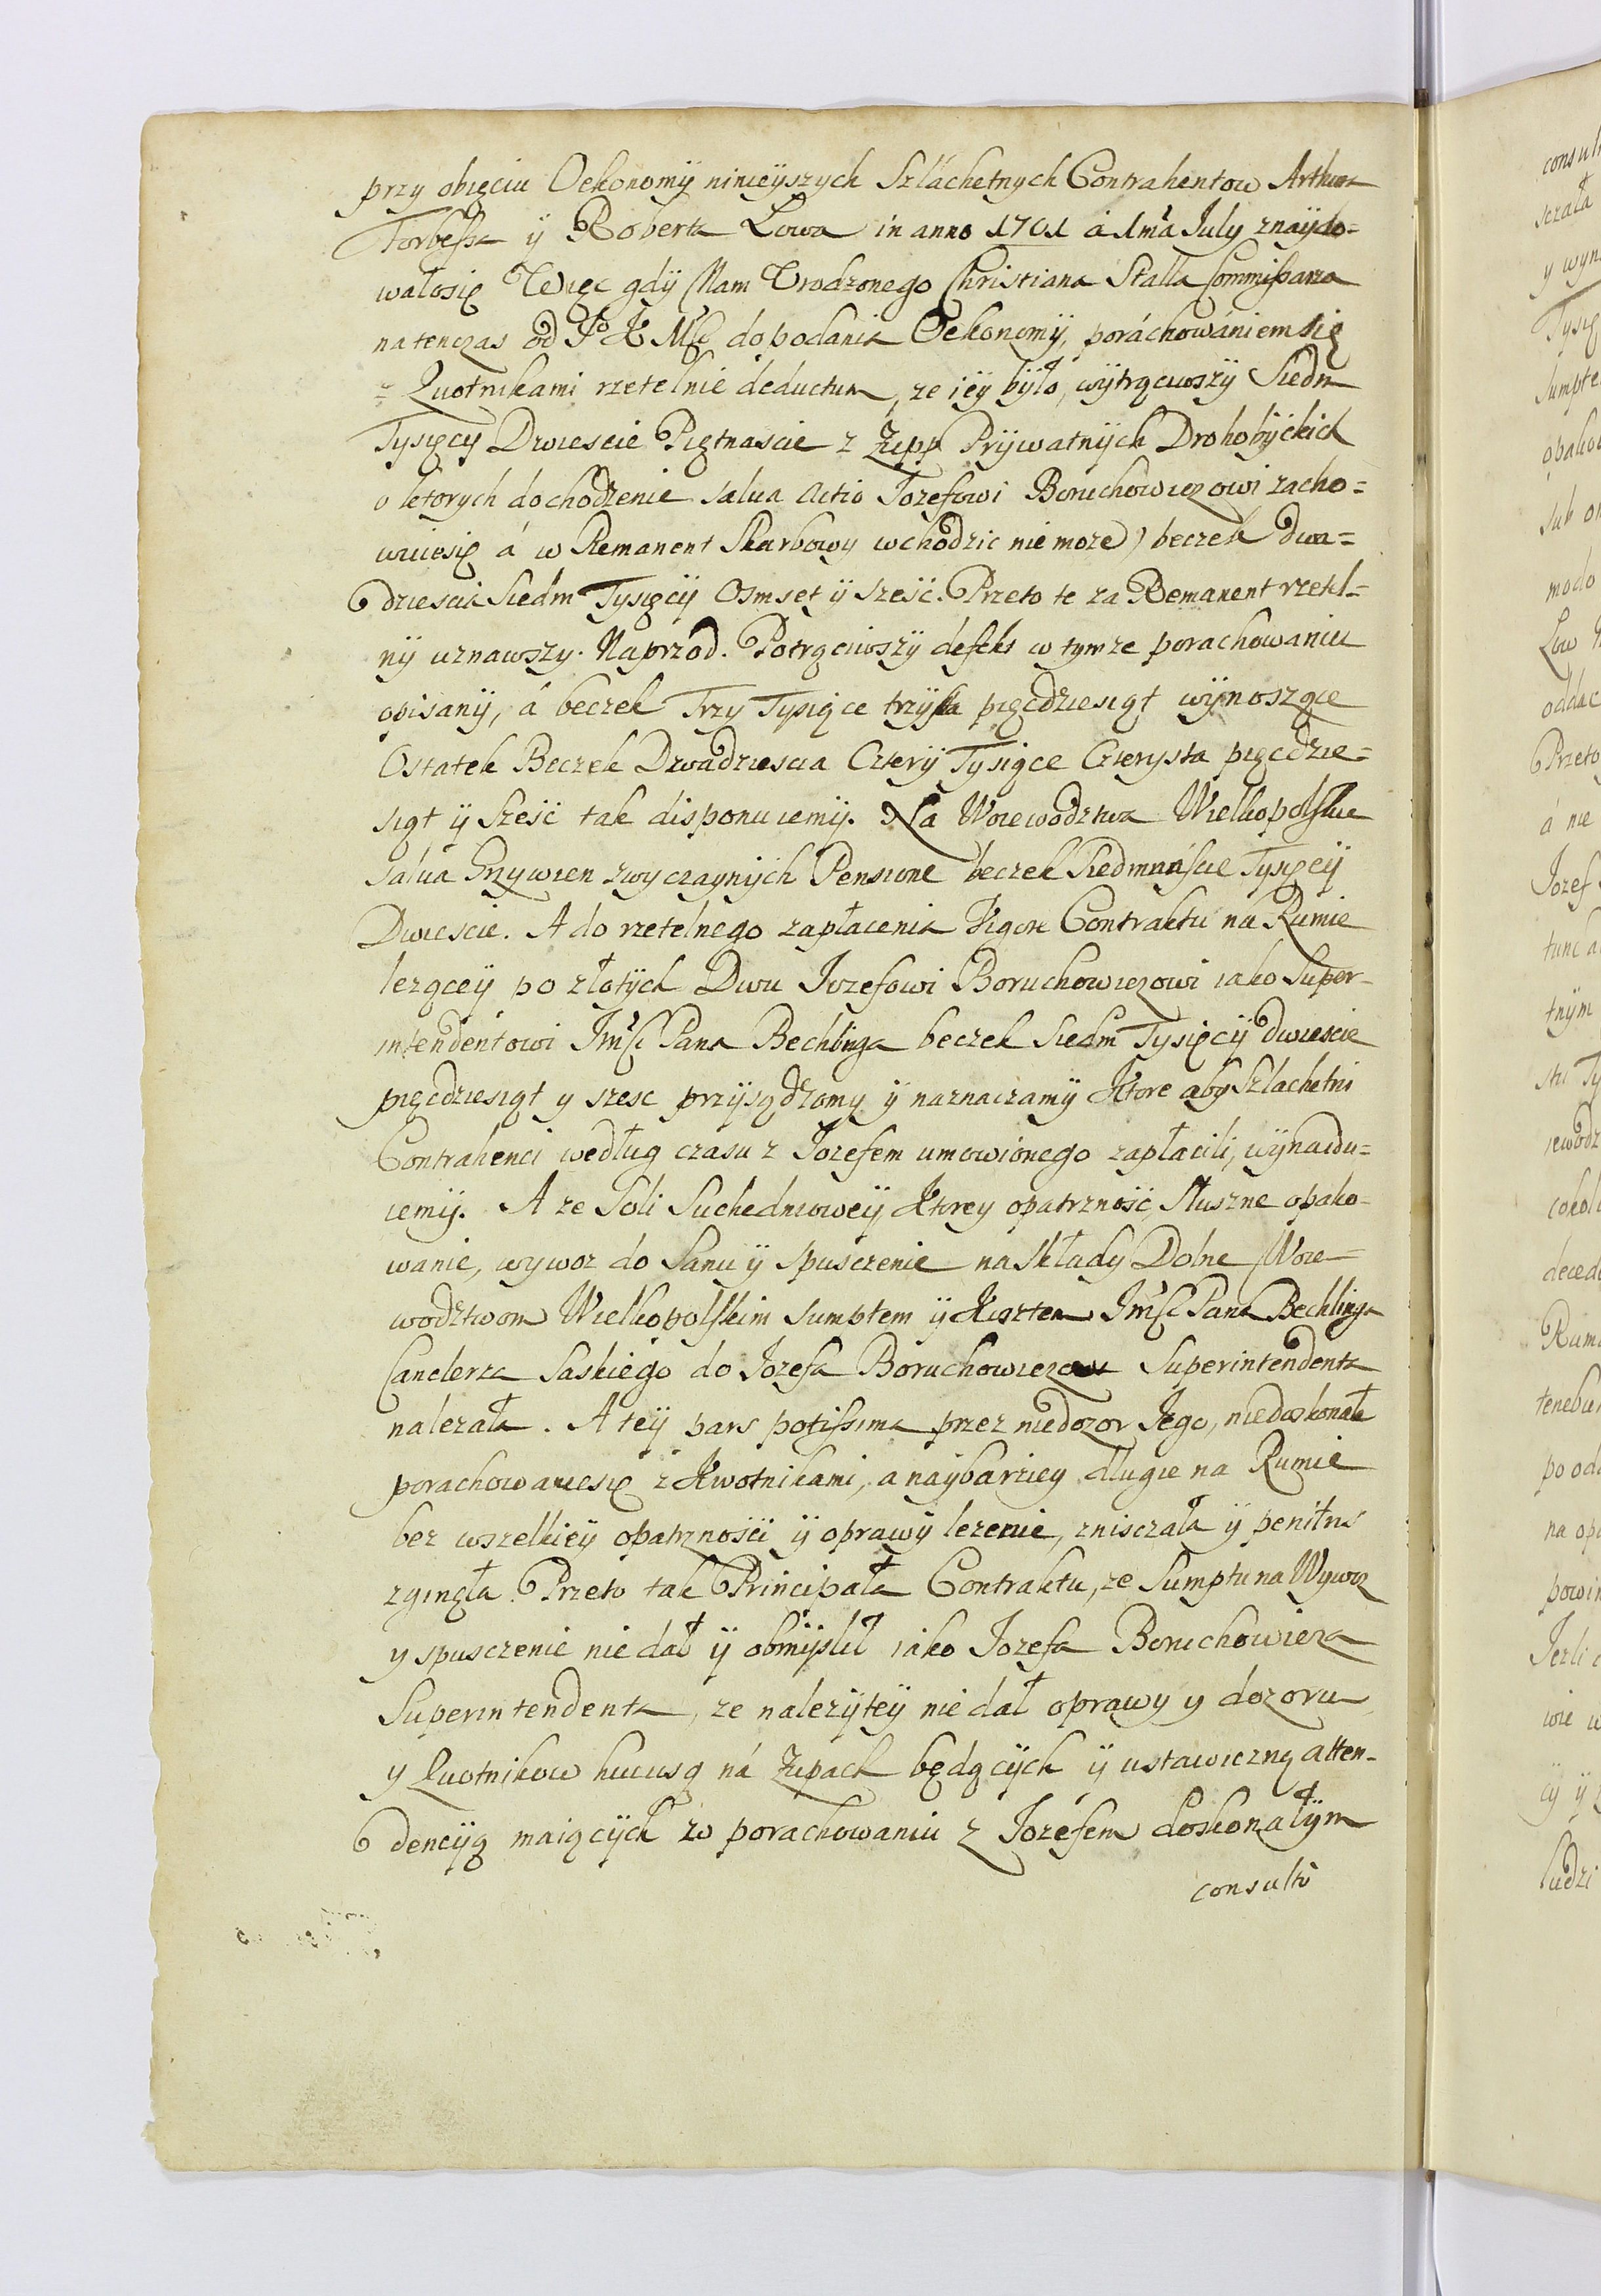 przy obięciu Oekonomÿ ninieÿszych Szláchetnych Contrahentow Arthura
Forbessa ÿ Roberta Lowa in anno 1701 á 1má July znaÿdo=
wałosię Więc gdÿ Nam Urodzonego Christiana Stalla Commissarza
natenczas od J K Mśc dopodania Oekonomÿ, poráchowániem się
z Quotnikami rzetelnie deductum, ze ieÿ bÿło, wÿtrąciwszÿ Siedm
Tysięcÿ Dwiescie Piętnascie z Zupp Prÿwatnÿch Drohobÿckich
o ktorych dochodzenie salua actio Jozefowi Boruchowiczowi zacho=
wuiesię á w Remanent Skarbowy wchodzic nie moze) beczek dwa=
dziescia Siedm Tysięcÿ Osmset ÿ sześć. Przeto te za Remanent rzetel=
nÿ uznawszy. Naprzod. Potrąciwszÿ defekt w tymze porachowaniu
opisanÿ, á beczek Trzy Tysiące trzÿsta pięcdziesiąt wÿnoszące
Ostatek Beczek Dwadziescia Czterÿ Tysiące Czterysta pięcdzie=
siąt ÿ sześć tak disponuiemÿ. Na Woiewodztwa Wielkopolskie
salua Grzywien zwyczaynÿch Pensione beczek Siedmnaście Tysięcÿ
Dwiescie. A do rzetelnego zapłacenia Vigore Contraktu ná Rumie
lezącеÿ po złotÿch Dwu Jozefowi Boruchowiczowi iako Super-
intendentowi Jmśc Pana Bechlinga beczek Siedm Tysięcÿ dwiescie
pięcdziesiąt y szesc przÿsądzamy ÿ naznaczamÿ Ktore aby Szlachetni
Contrahenci według czasu z Jozefem umowionego zapłacili, wÿnaidu=
iemÿ. A ze Soli Suchedniowеÿ Ktorey opatrzność, słuszne opako-
wanie, wywoz do Sanu ÿ spusczenie na składy Dolne Woie=
wodztwom Wielkopolskim sumptem ÿ Kosztem Jmśc Pana Bechlinga
Canclerza Saskiego do Jozefa Boruchowicza Superintendenta
nalezała. A teÿ pars potissima przez niedozor Jego, niedoskonałe
porachowaniesię z Kwotnikami, a naÿbarziey długie na Rumie
bez wszelkieÿ opatrznośći ÿ oprawÿ lezenie, znisczała ÿ penitus
zginęła. Przeto tak Principała Contraktu, ze Sumptu na Wywoz
y spusczenie nie dał ÿ obmÿslił iáko Jozefa Boruchowicza
Superintendenta, ze nalezÿteÿ nie dał oprawy y dozoru
y Quotnikow hucusq ná Zupach będącÿch ÿ ustawiczną atten-
dencÿą maiącÿch w porachowaniu z Jozefem doskonałÿm
consultó